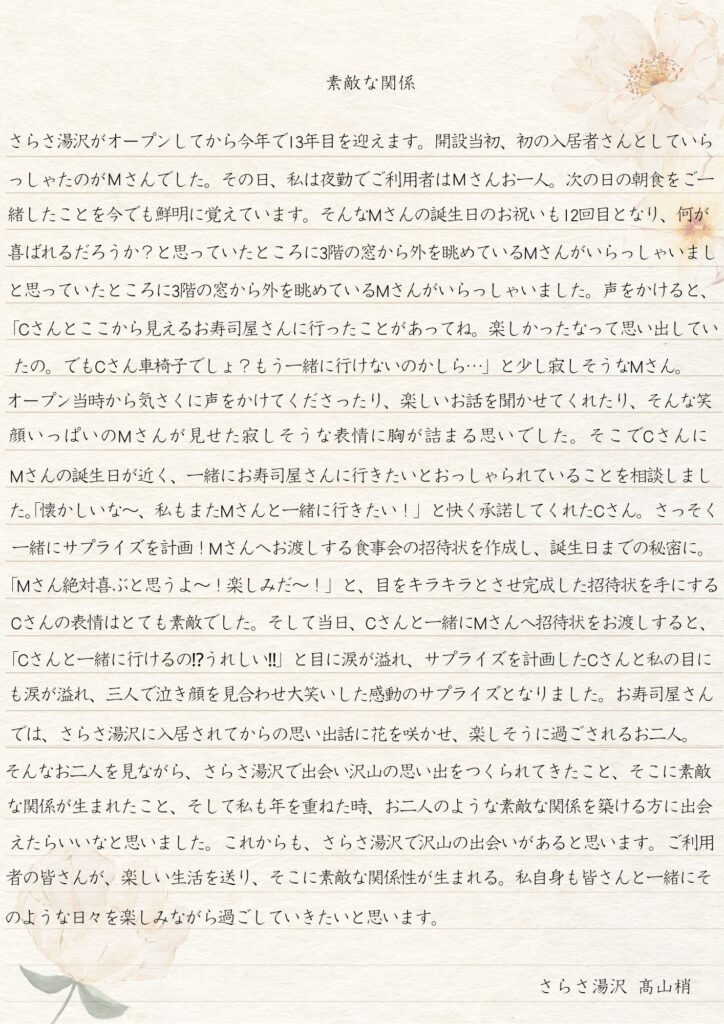 素敵な関係
さらさ湯沢がオープンしてから今年で13年目を迎えます。開設当初、初の入居者さんとしていら
っしゃたのがMさんでした。その日、私は夜勤でご利用者はMさんお一人。次の日の朝食をご一
緒したことを今でも鮮明に覚えています。そんなMさんの誕生日のお祝いも12回目となり、何が
喜ばれるだろうか？と思っていたところに3階の窓から外を眺めているMさんがいらっしゃいまし
と思っていたところに3階の窓から外を眺めているMさんがいらっしゃいました。声をかけると、
「Cさんとここから見えるお寿司屋さんに行ったことがあってね。楽しかったなって思い出してい
たの。でもCさん車椅子でしょ？もう一緒に行けないのかしら…」と少し寂しそうなMさん。
オープン当時から気さくに声をかけてくださったり、楽しいお話を聞かせてくれたり、そんな笑
顔いっぱいのMさんが見せた寂しそうな表情に胸が詰まる思いでした。そこでCさんに
Mさんの誕生日が近く、一緒にお寿司屋さんに行きたいとおっしゃられていることを相談しまし
た。「懐かしいな～、私もまたMさんと一緒に行きたい！」と快く承諾してくれたCさん。さっそく
一緒にサプライズを計画！Mさんへお渡しする食事会の招待状を作成し、誕生日までの秘密に。
「Mさん絶対喜ぶと思うよ～！楽しみだ～！」と、目をキラキラとさせ完成した招待状を手にする
Cさんの表情はとても素敵でした。そして当日、Cさんと一緒にMさんへ招待状をお渡しすると、
「Cさんと一緒に行けるの⁉うれしい‼」と目に涙が溢れ、サプライズを計画したCさんと私の目に
も涙が溢れ、三人で泣き顔を見合わせ大笑いした感動のサプライズとなりました。お寿司屋さん
では、さらさ湯沢に入居されてからの思い出話に花を咲かせ、楽しそうに過ごされるお二人。
そんなお二人を見ながら、さらさ湯沢で出会い沢山の思い出をつくられてきたこと、そこに素敵
な関係が生まれたこと、そして私も年を重ねた時、お二人のような素敵な関係を築ける方に出会
えたらいいなと思いました。これからも、さらさ湯沢で沢山の出会いがあると思います。ご利用
者の皆さんが、楽しい生活を送り、そこに素敵な関係性が生まれる。私自身も皆さんと一緒にそ
のような日々を楽しみながら過ごしていきたいと思います。
さらさ湯沢 髙山梢